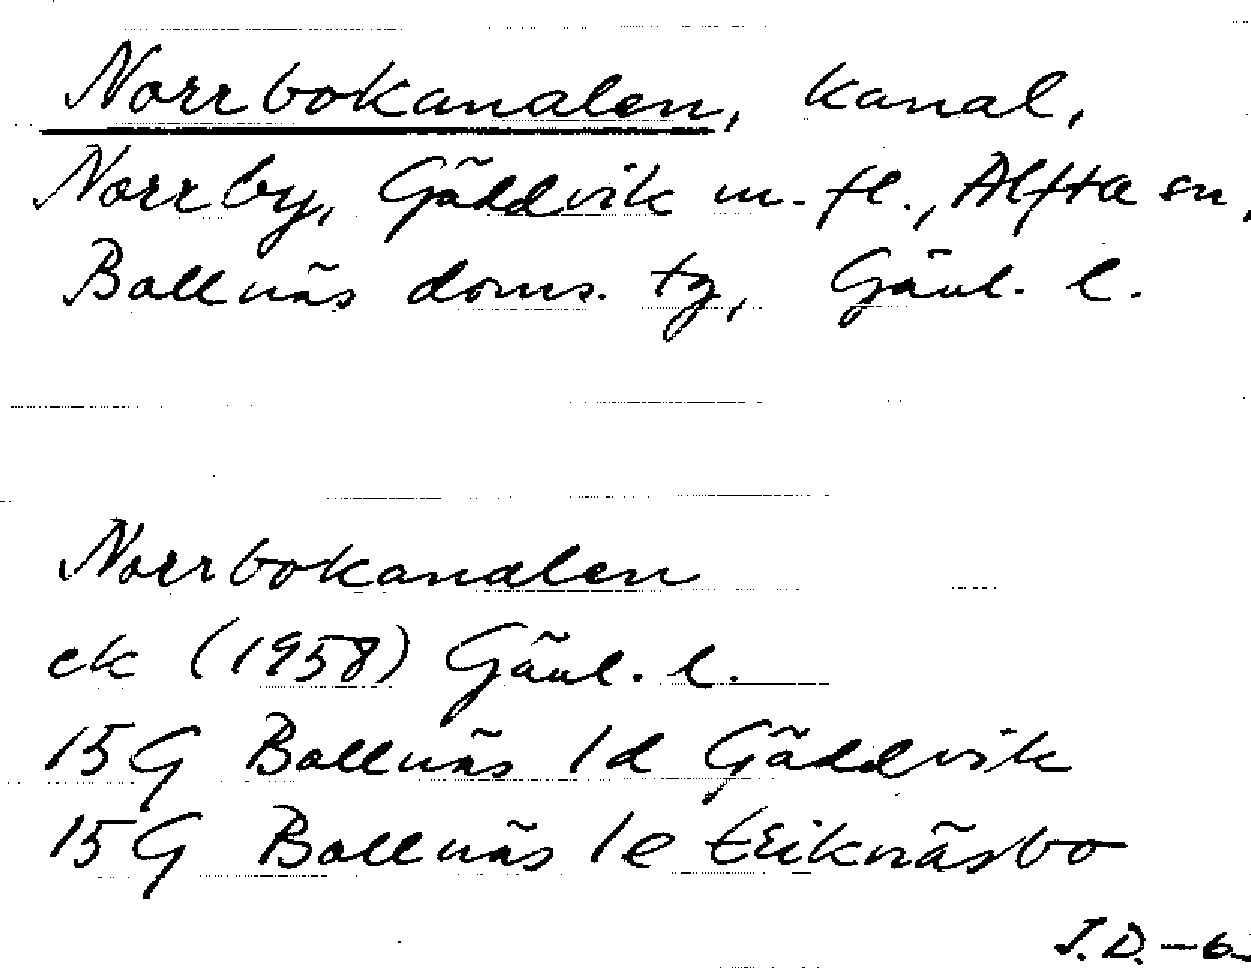 Norrbokanalen, kanal,
Norrby, Gäddvik m. fl., Alfta sn,
Bollnäs doms. tg, Gävl. l.
Norrbokanalen
ek (1958) Gävl. l.
15G Bollnäs 1d Gäddvik
15G Bollnäs 1e Eriknäsbo
J.D. -6